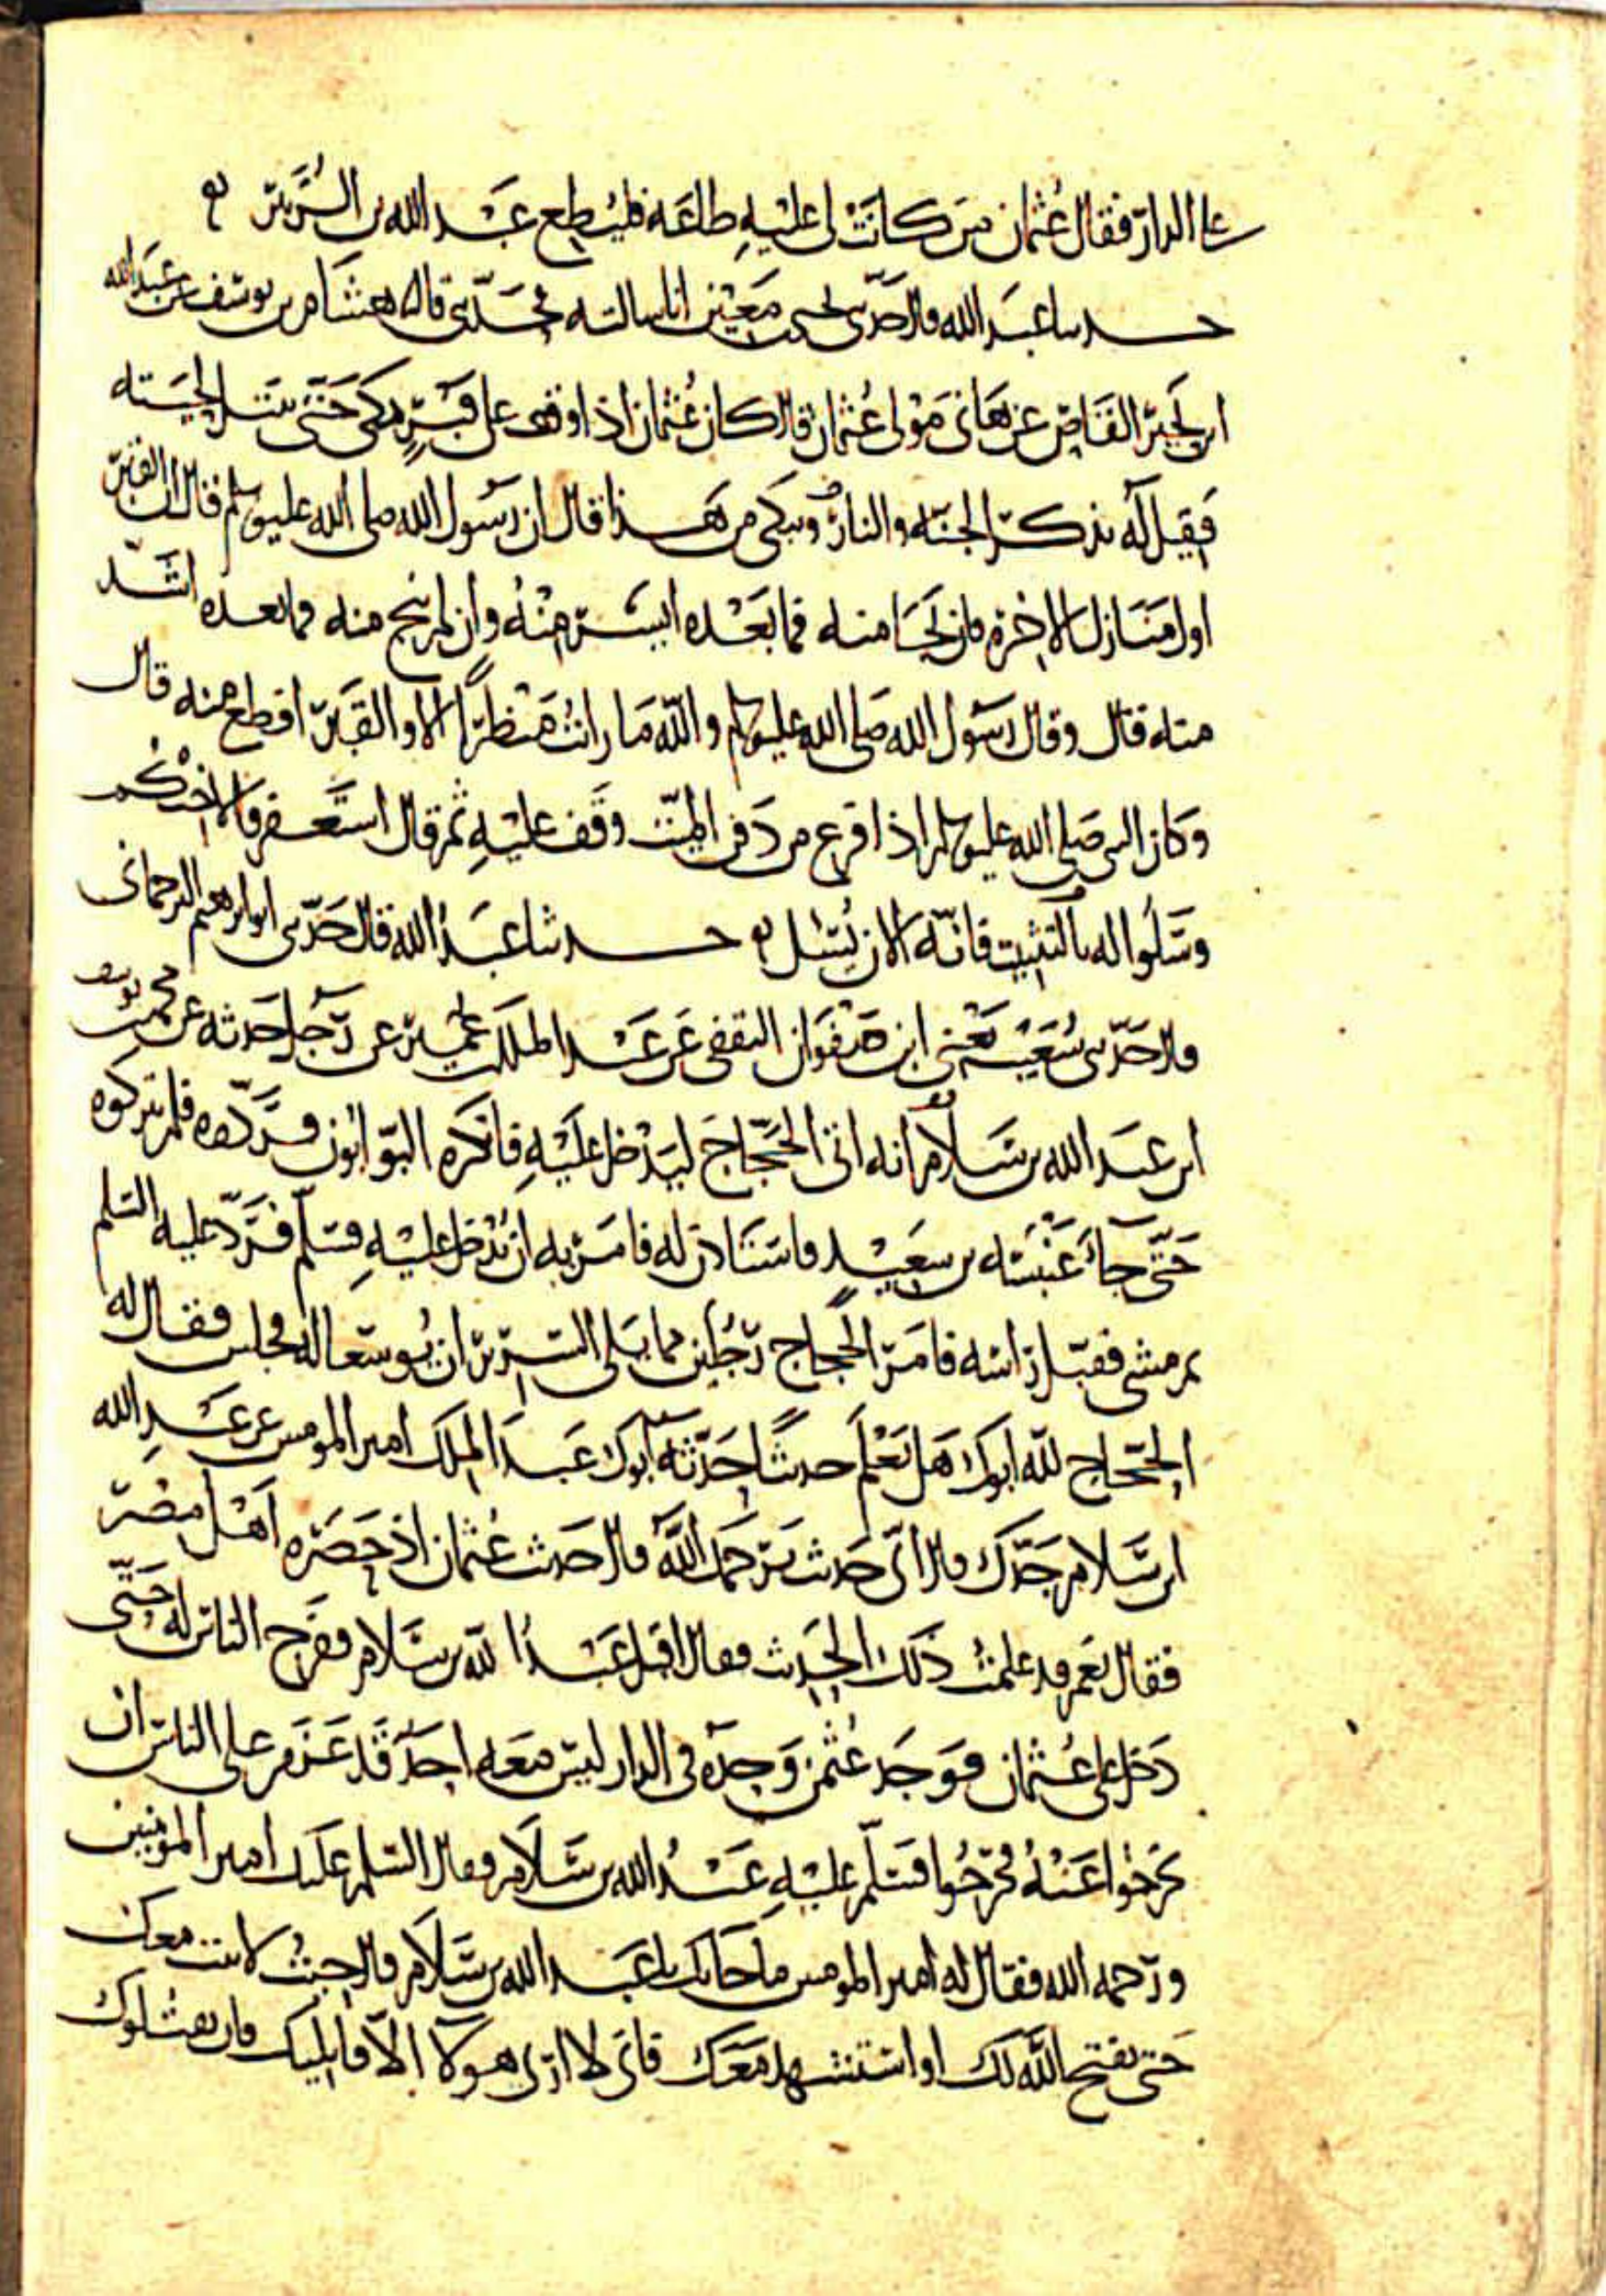 على الدار فقال عثمان من كانت لي عليه طاعة فليطع عبد الله بن الزبير
حدثنا عبد الله قال حدثني يحيى بن معين انا سالته فحدثني قال هشام بن يوسف عن عبد الله
ابن بحير القاص عن هانى مولى عثمان قال كان عثمان اذا وقف على قبر بكى حتى تبتل لحيته
فقيل له تذكر الجنة والنار وتبكى من هذا قال ان رسول الله صلى الله عليه وسلم قال ان القبر
اول منازل الاخرة فان نجا منه فما بعده ايسر منه وان لم ينج منه فما بعده اشد
منه قال وقال رسول الله صلى الله عليه وسلم والله ما رايت منظرا الا والقبر افظع منه قال
وكان النبي صلى الله عليه وسلم اذا فرغ من دفن الميت وقف عليه ثم قال استغفروا لاخيكم
وسلوا له بالتثبيت فانه الان يسئل حدثنا عبد الله قال حدثني ابو ابرهيم الترجمانى
قال حدثني شعيب يعنى ابن صفوان الثقفى عن عبد الملك بن عمير عن رجل حدثه عن محمد بن يوسف
ابن عبد الله بن سلام انه اتى الحجاج ليدخل عليه فانكره البوابون فردوه فلم يتركوه
حتى جاء عنبسة بن سعيد فاستاذن له فامر به ان يدخل عليه فسلم فرد عليه السلم
ثم مشى فقبل راسه فامر الحجاج رجلين مما يلى السرير ان يوسعا له فجلس فقال له
الحجاج لله ابوك هل تعلم حديثا حدثه ابوك عبد الملك امير المومنين عن عبد الله
ابن سلام جدك قال اى حديث يرحمك الله قال حديث عثمان اذ حصره اهل مصر
فقال نعم قد علمت ذلك الحديث فقال اقبل عبد الله بن سلام ففرج الناس له حتى
دخل على عثمان فوجد عثمن وحده فى الدار ليس معه احد قد عزم على الناس ان
يخرجوا عنه فخرجوا فسلم عليه عبد الله بن سلام فقال السلم عليك امير المومنين
ورحمه الله فقال له امير المومنين ما جا بك يا عبد الله بن سلام قال جيت لابيت معك
حتى يفتح الله لك او استشهد معك فانى لا ارى هولا الا قاتليك فان يقتلوك